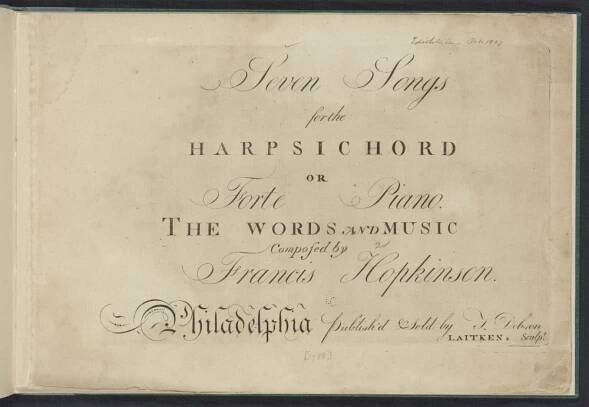 Seven Songs
for the
HARPSICHORD
OR
Forte Piano.
THE WORDS AND MUSIC
Composed by
Francis Hopkinson.
Philadelphia Publish'd & Sold by T. Dobson
I. AITKEN. Sculpt.
[1788]